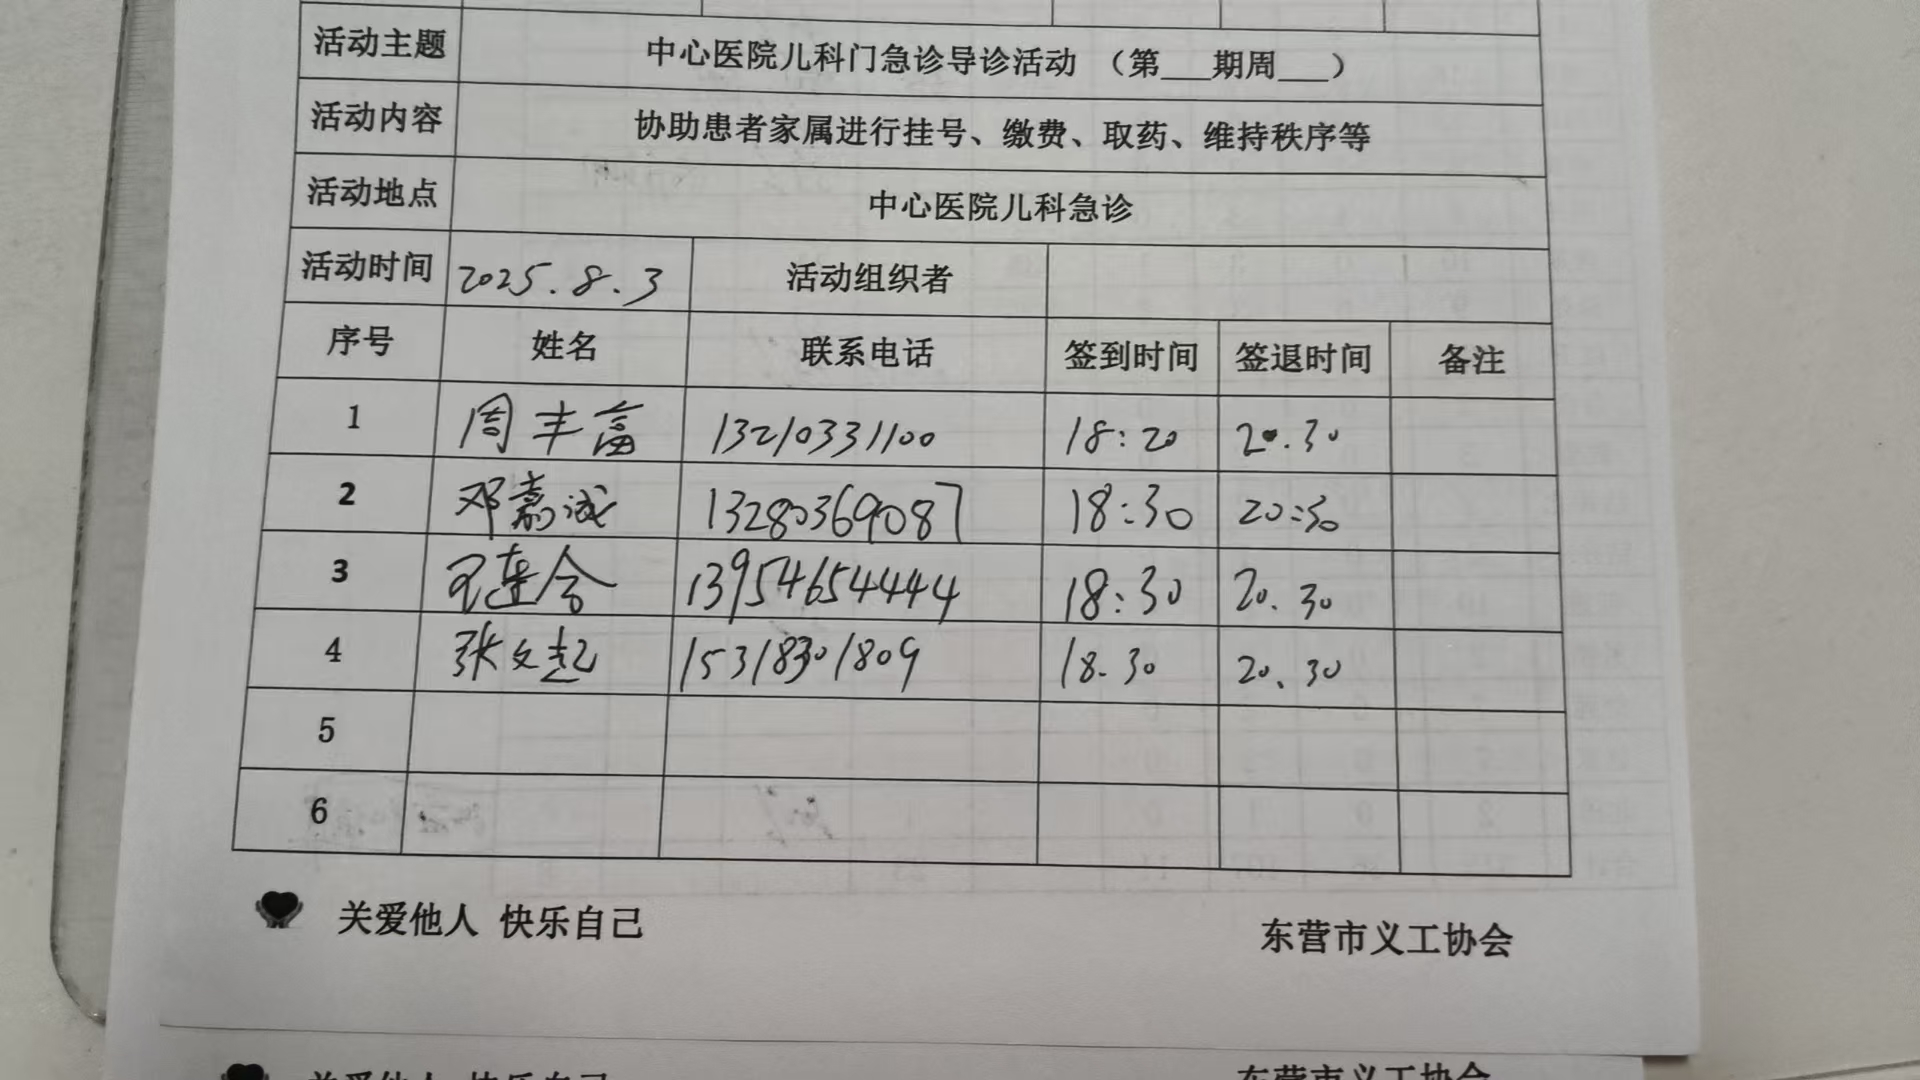 活动主题 中心医院儿科门急诊导诊活动 （第___期周___）
活动内容 协助患者家属进行挂号、缴费、取药、维持秩序等
活动地点 中心医院儿科急诊
活动时间 2025.8.3 活动组织者
序号 姓名 联系电话 签到时间 签退时间 备注
1 周丰富 13210331100 18:20 20.30
2 邓嘉诚 13280369087 18:30 20:30
3 王莲合 13954654444 18:30 20.30
4 张文起 15318301809 18.30 20.30
5
6
关爱他人 快乐自己 东营市义工协会
关爱他人 快乐自己 东营市义工协会